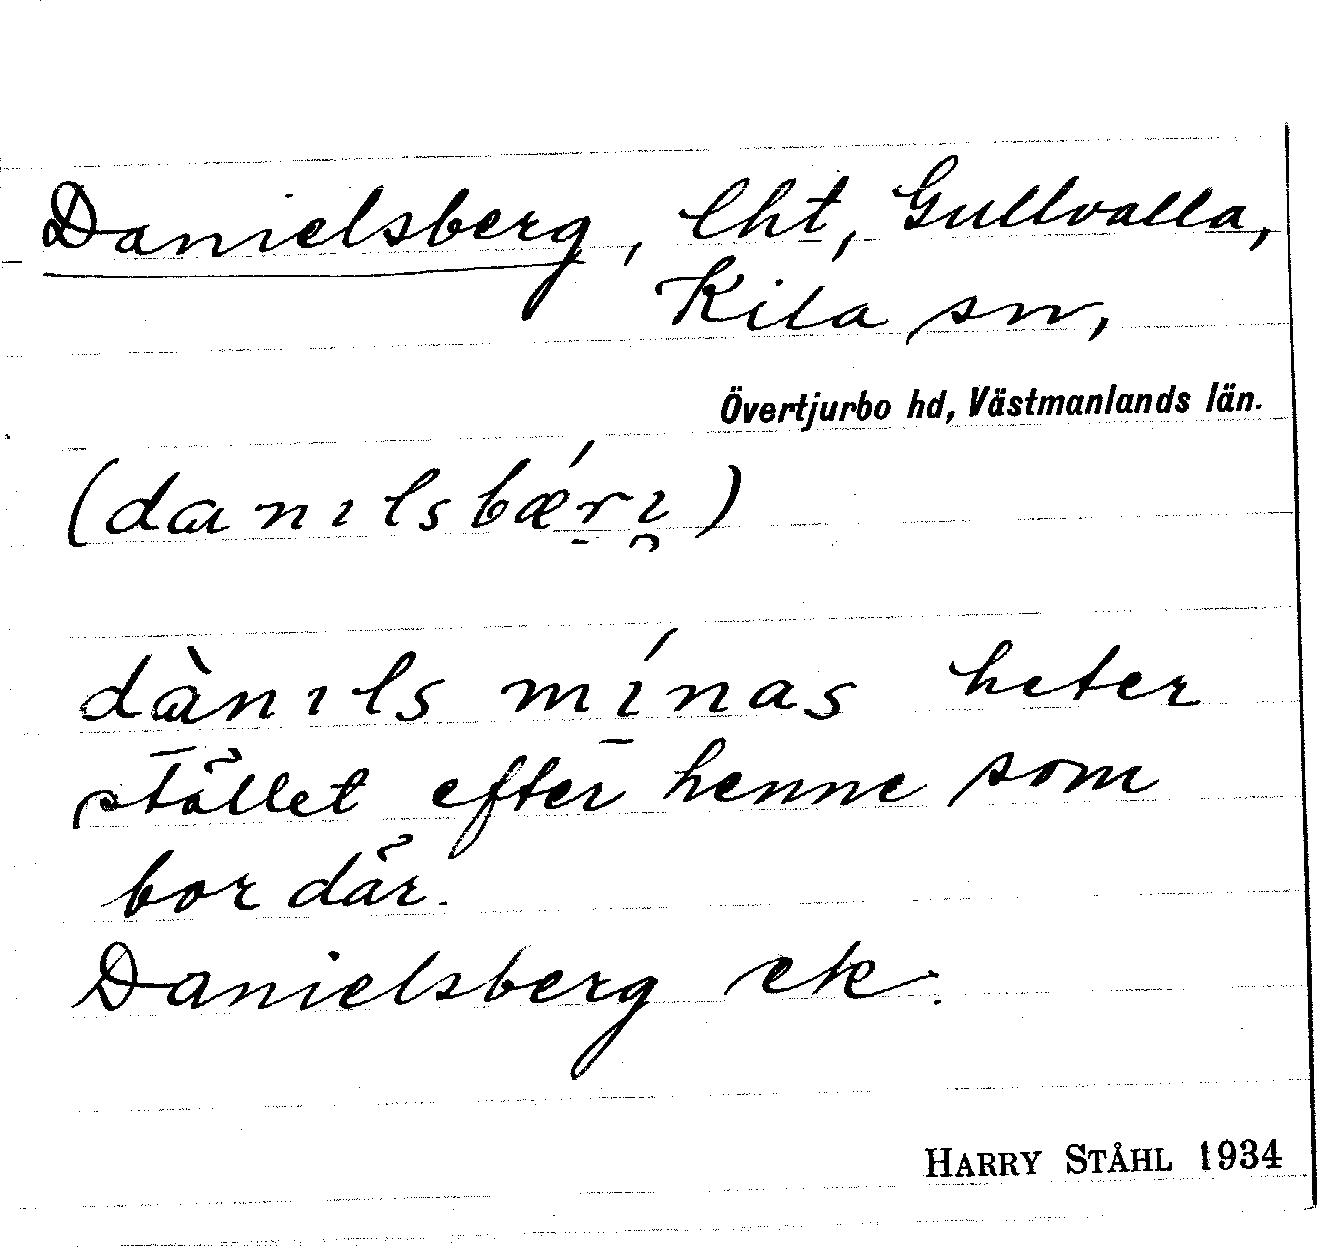 Danielsberg, lht, Gullvalla,
Kila sn,
Övertjurbo hd, Västmanlands län.
(danılsbǽrı̯)
dànıls mínas heter
stället efter henne som
bor där.
Danielsberg ek.
HARRY STÅHL 1934